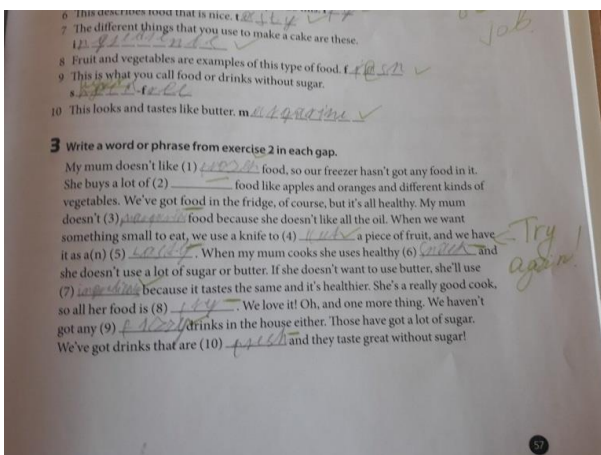 6 This describes food that is nice. t
job.
7 The different things that you use to make a cake are these.
i
8 Fruit and vegetables are examples of this type of food. fresh
9 This is what you call food or drinks without sugar.
s -f
10 This looks and tastes like butter. m
3 Write a word or phrase from exercise 2 in each gap.
My mum doesn't like (1) food, so our freezer hasn't got any food in it.
She buys a lot of (2) food like apples and oranges and different kinds of
vegetables. We've got food in the fridge, of course, but it's all healthy. My mum
doesn't (3) food because she doesn't like all the oil. When we want
something small to eat, we use a knife to (4) a piece of fruit, and we have
it as a(n) (5) . When my mum cooks she uses healthy (6) snack and
Try again!
she doesn't use a lot of sugar or butter. If she doesn't want to use butter, she'll use
(7) because it tastes the same and it's healthier. She's a really good cook,
so all her food is (8) fry . We love it! Oh, and one more thing. We haven't
got any (9) drinks in the house either. Those have got a lot of sugar.
We've got drinks that are (10) fresh and they taste great without sugar!
57